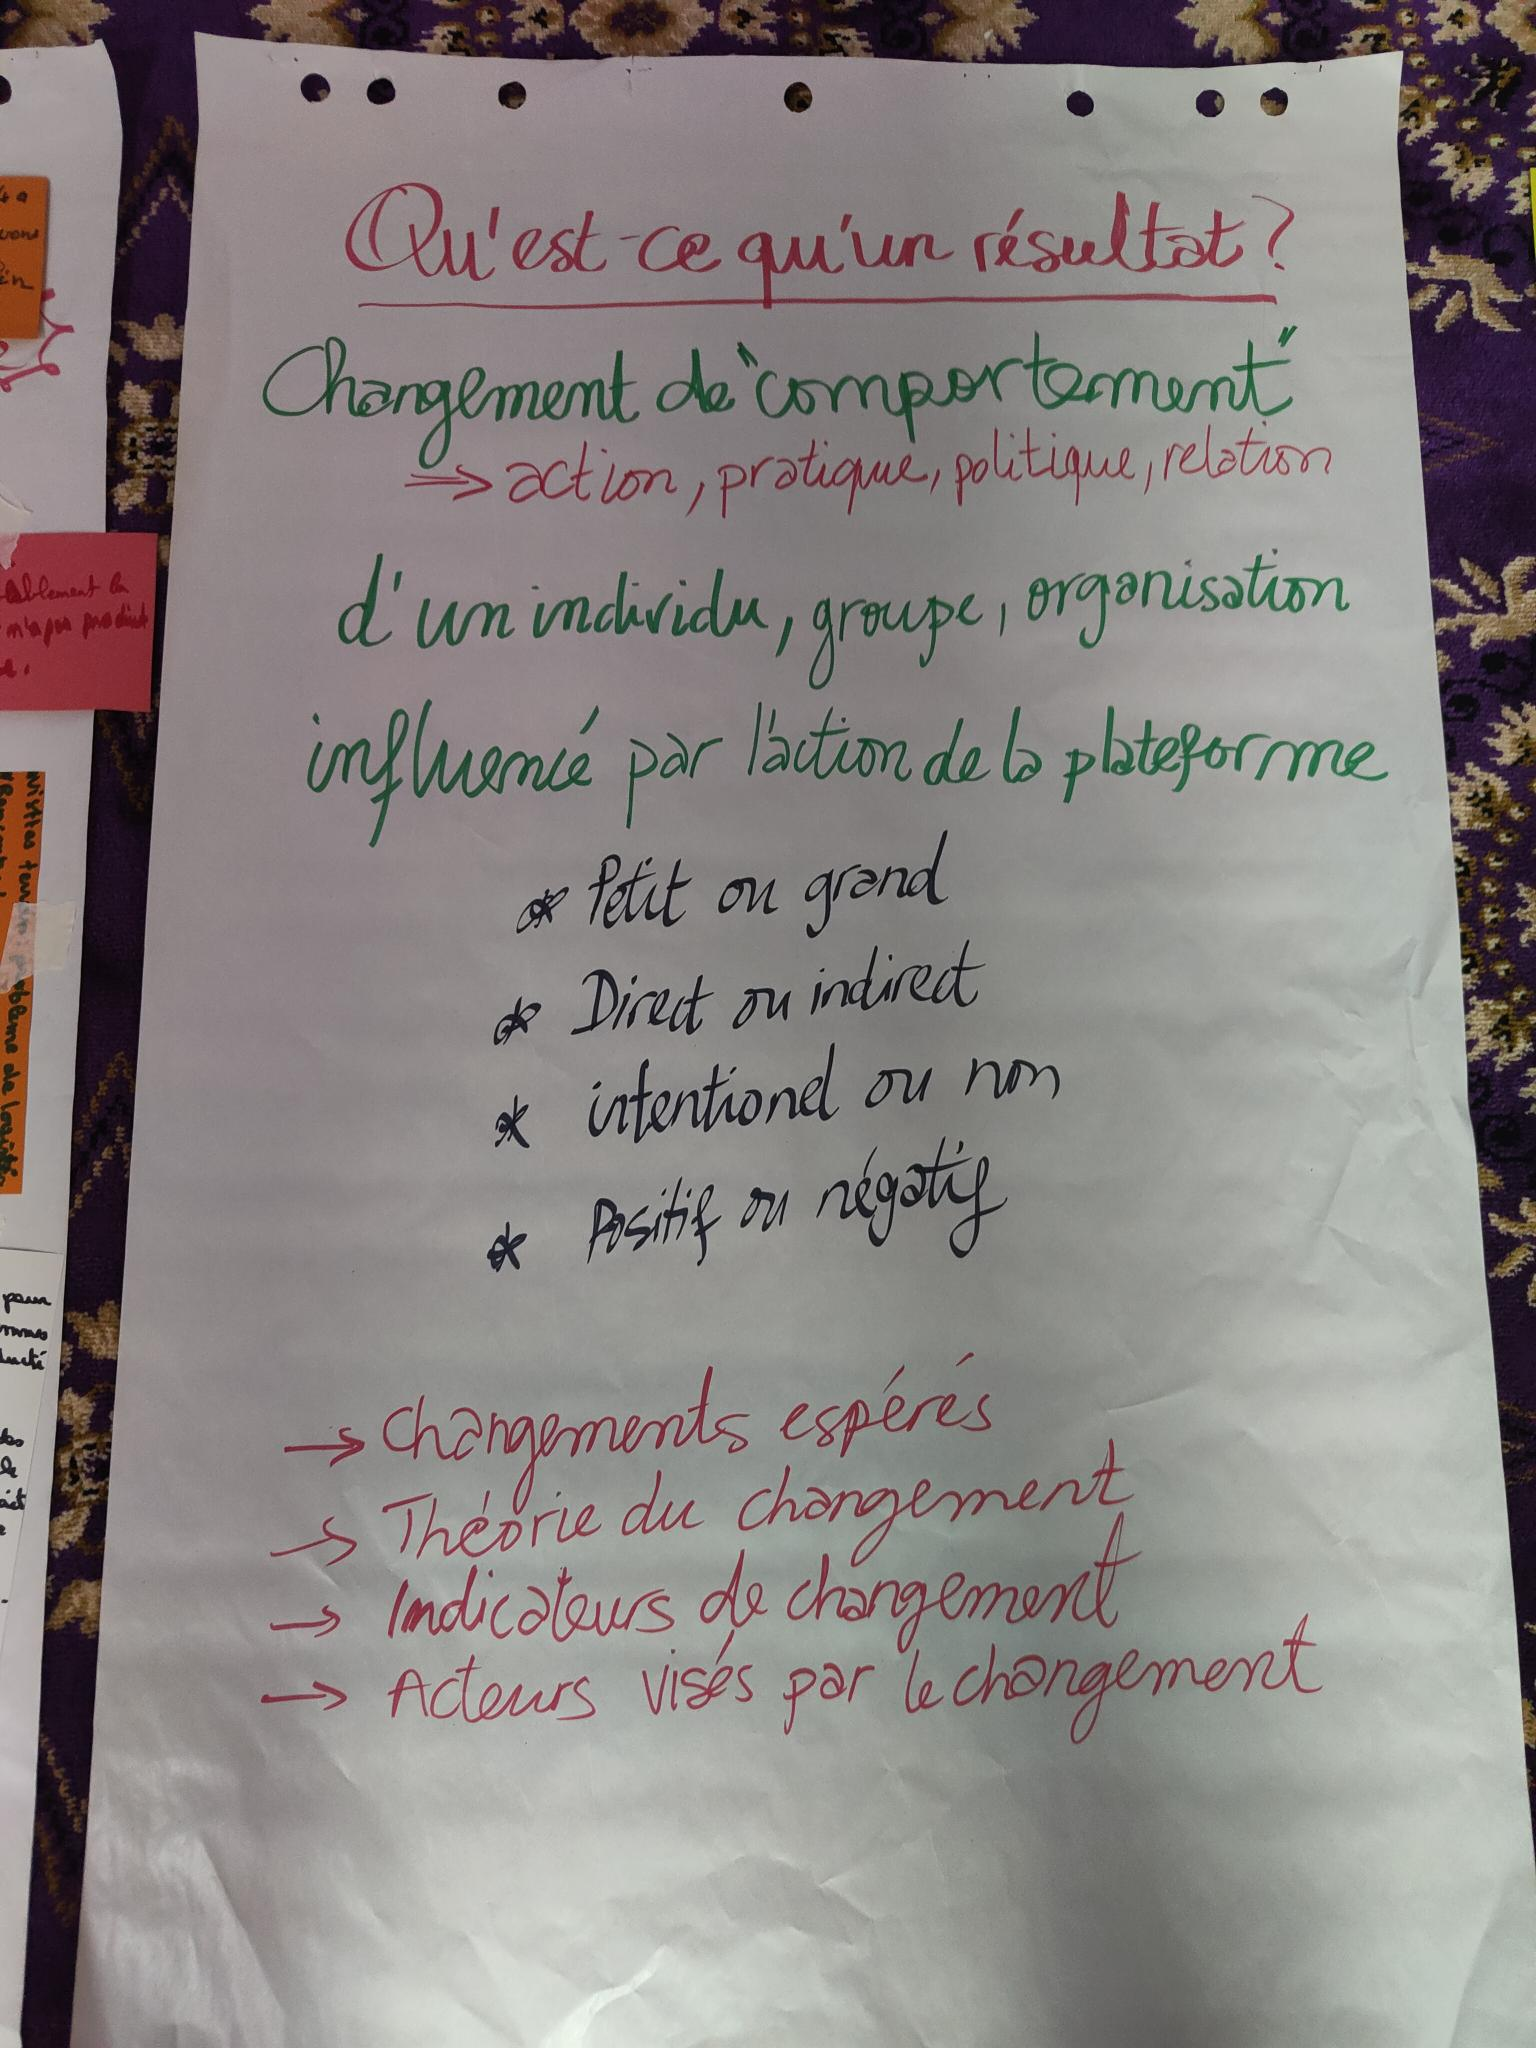 Qu'est-ce qu'un résultat ?
Changement de "comportement"
⇒ action, pratique, politique, relation
d'un individu, groupe, organisation
influencé par l'action de la plateforme
* Petit ou grand
* Direct ou indirect
* intentionel ou non
* Positif ou négatif
→ Changements espérés
→ Théorie du changement
→ Indicateurs de changement
→ Acteurs visés par le changement
n'a pas produit
problème de
pour